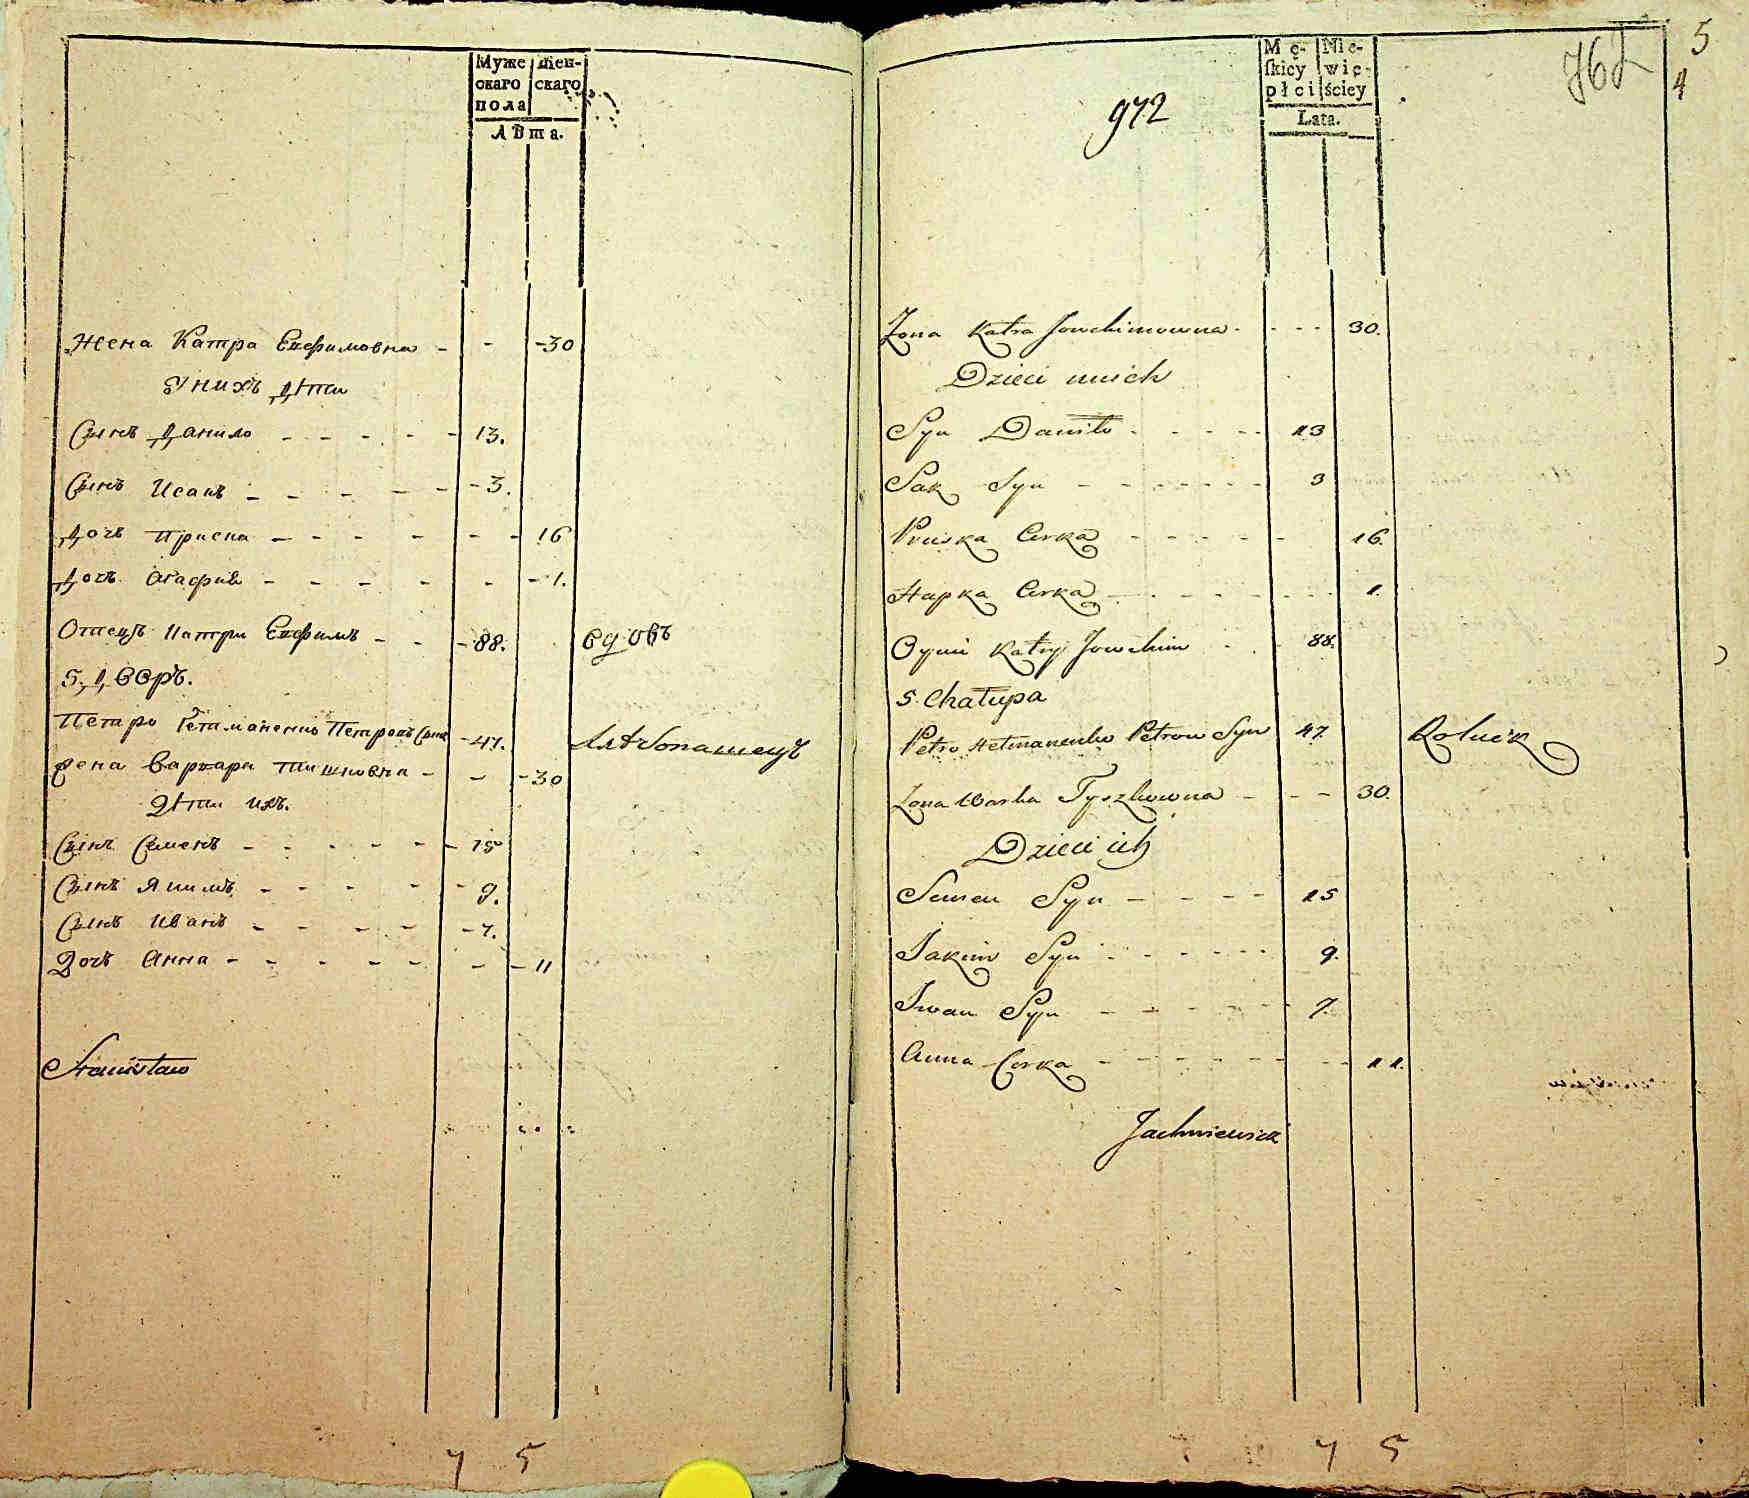 Муже
скаго
пола
Жен-
скаго
Лѣта.
Жена Катра Евфимовна - - - 30
У нихъ дѣти
Сынъ Данило - - - - - 13.
Сынъ Исакъ - - - - - 3.
Дочь Приска - - - - - - 16
Дочь Агафия - - - - - - 1.
Отецъ Катри Евфимъ - - - 88. вдовъ
5. Дворъ.
Петро Гетманенко Петровъ Сынъ - 47. Хлѣбопашецъ
Жена Варвара Тишковна - - - 30
Дѣти ихъ.
Сынъ Семенъ - - - - - - 15
Сынъ Якимъ - - - - - 9.
Сынъ Иванъ - - - - - 7.
Дочь Анна - - - - - - - 11
Stanisław
7 5
972
762
5
4
Mę-
skiey
płci
Nie-
wie-
ściey
Lata.
Żona Katra Jowchimowna - - - - 30.
Dzieci unich
Syn Daniło - - - - - 13
Sak Syn - - - - - - 3
Pruska Corka - - - - - 16.
Hapka Corka - - - - - - 1.
Oyciec Katry Jowchim - - - 88.
5. Chałupa
Petro Hetmanenko Petrow Syn 47 Rolnik
Żona Warka Tyszkowna - - - 30.
Dzieci ich
Semen Syn - - - - 15
Jakim Syn - - - - - - 9.
Iwan Syn - - - - - - 7.
Anna Corka - - - - - - - - 11.
Jachniewicz
7 5